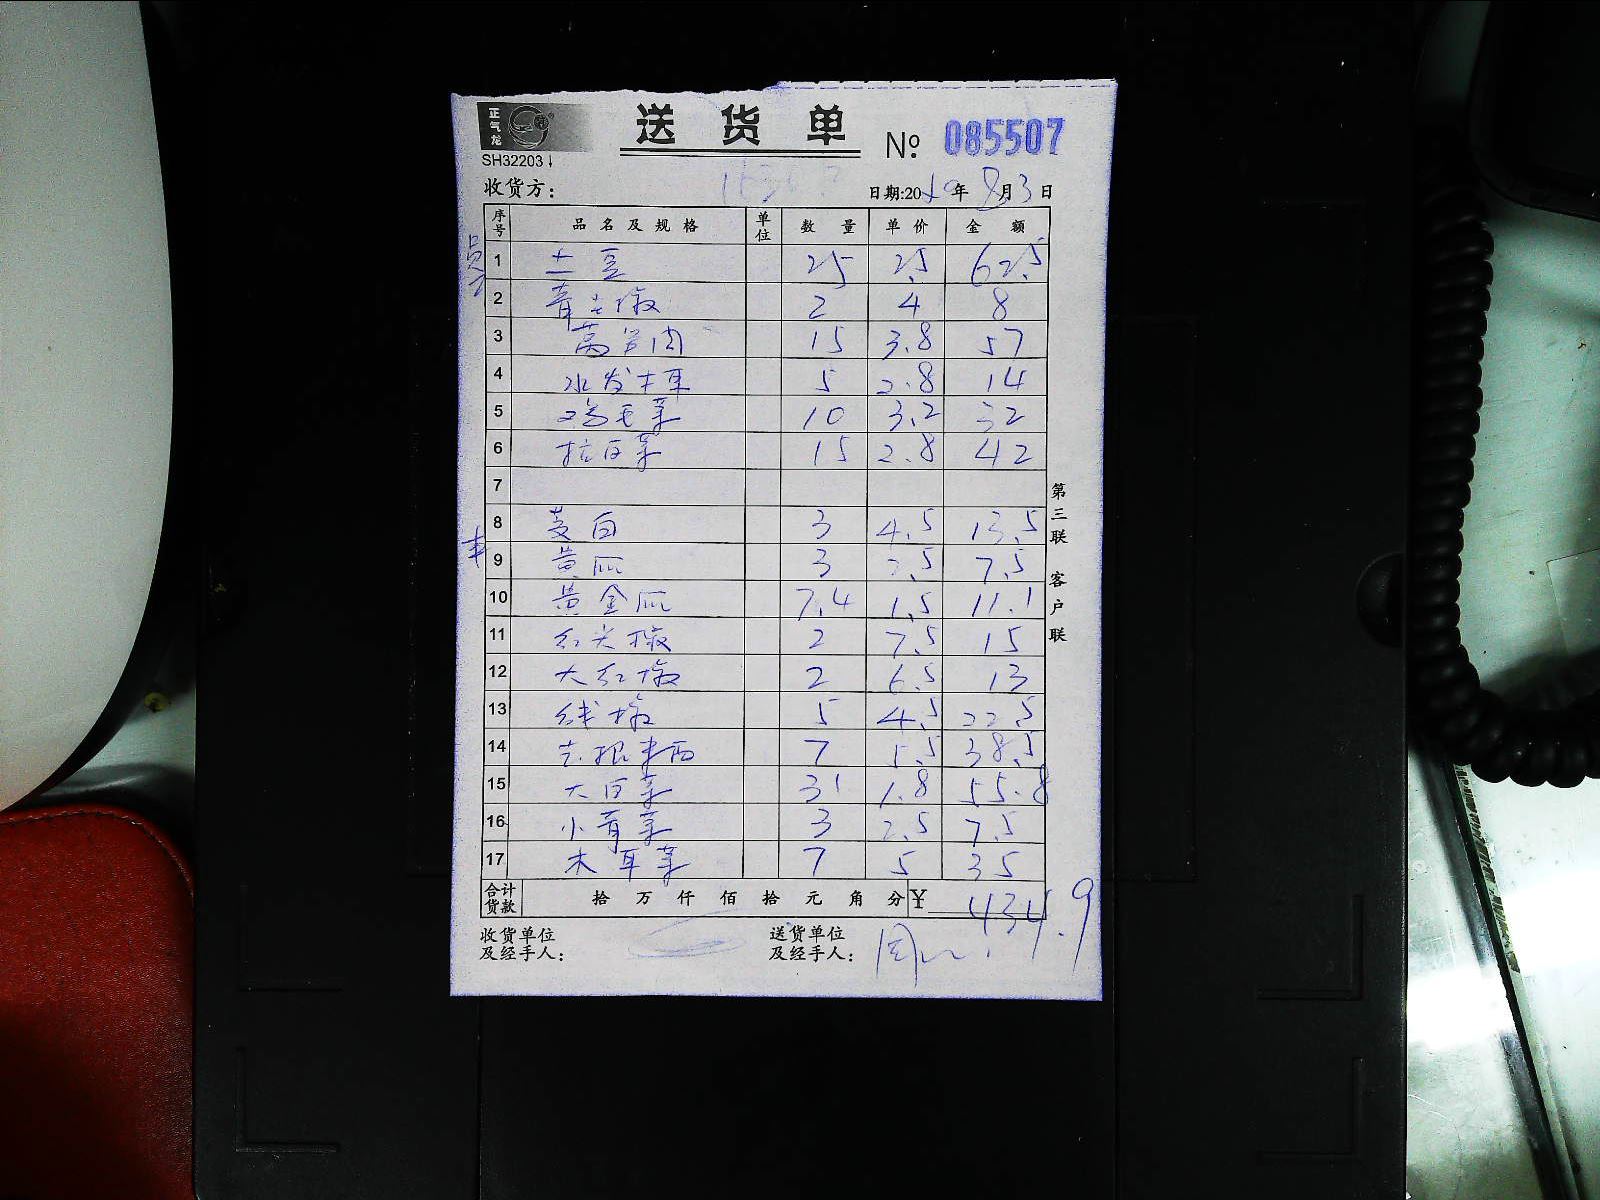 正气龙
SH32203
送货单
№ 085507
收货方：
日期:20 年 8月3日
序号 品名及规格 单位 数量 单价 金额
1 土豆 25 2.5 62.5
2 青尖椒 2 4 8
3 莴笋肉 15 3.8 57
4 水发木耳 5 2.8 14
5 鸡毛菜 10 3.2 32
6 白菜 15 2.8 42
7
8 茭白 3 4.5 13.5
9 黄瓜 3 2.5 7.5
10 黄金瓜 7.4 1.5 11.1
11 红尖椒 2 7.5 15
12 大红椒 2 6.5 13
13 线椒 5 4.5 22.5
14 去根 7 5.5 38.5
15 大白菜 31 1.8 55.8
16 小青菜 3 2.5 7.5
17 木耳菜 7 5 35
合计货款 拾 万 仟 佰 拾 元 角 分 ¥ 434.9
收货单位及经手人：
送货单位及经手人：
第三联 客户联